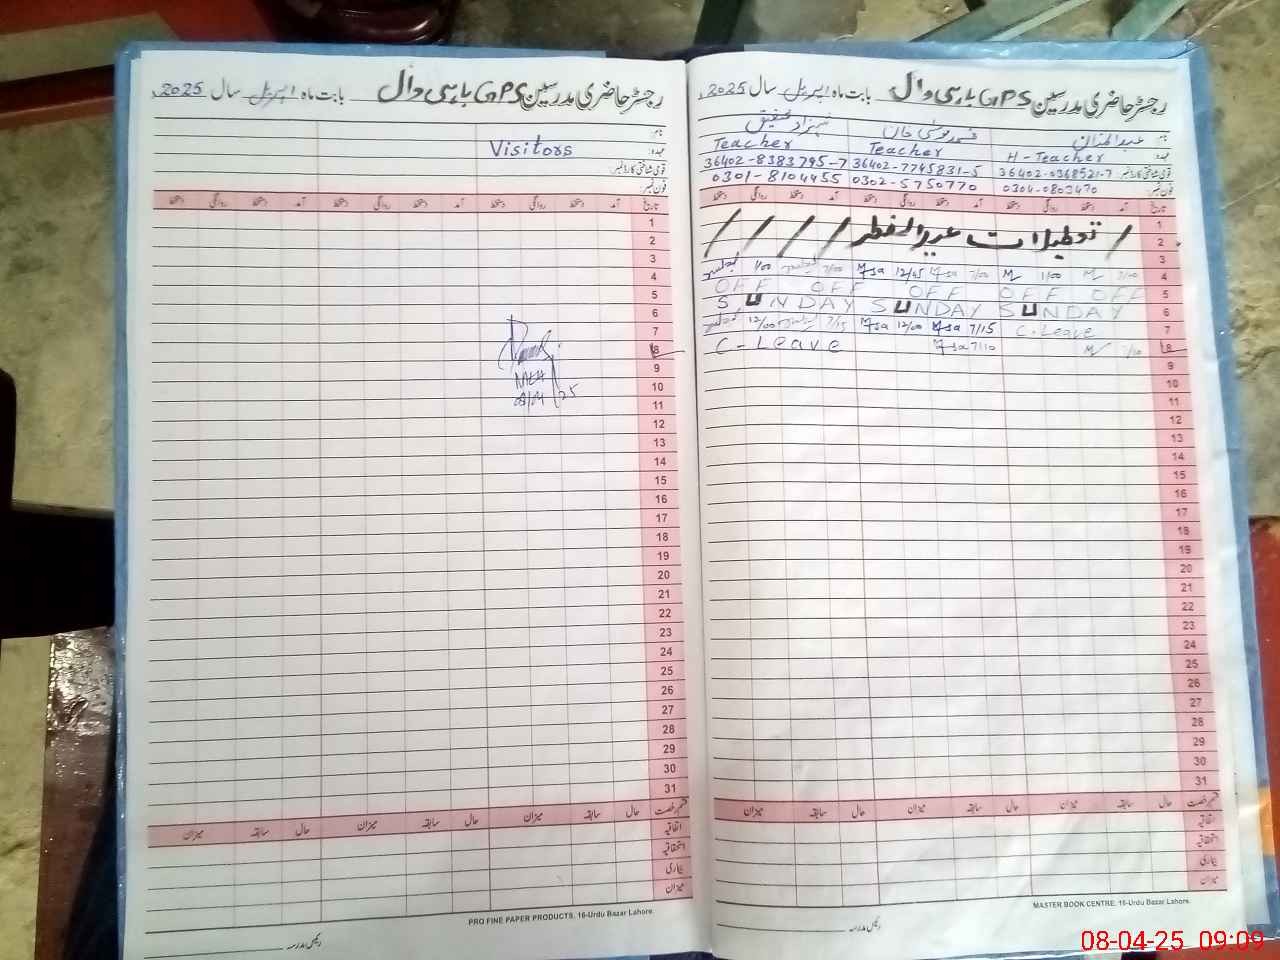 رجسٹر حاضری مدرسین GPS باہی وال بابت ماہ اپریل سال 2025
نام
عہدہ Visitors
قومی شناختی کارڈ نمبر
فون نمبر
تاریخ آمد دستخط روانگی دستخط آمد دستخط روانگی دستخط آمد دستخط روانگی دستخط
1
2
3
4
5
6
7
8
9
10
11
12
13
14
15
16
17
18
19
20
21
22
23
24
25
26
27
28
29
30
31
قسم رخصت حال سابقہ میزان حال سابقہ میزان حال سابقہ میزان
اتفاقیہ
استحقاقیہ
بیماری
میزان
PRO FINE PAPER PRODUCTS, 16-Urdu Bazar Lahore.
رئیس مدرسہ
رجسٹر حاضری مدرسین GPS باہی وال بابت ماہ اپریل سال 2025
نام عبدالمنان محمد موسیٰ خان شہزاد شفیق
عہدہ H-Teacher Teacher Teacher
قومی شناختی کارڈ نمبر 36402-0368521-7 36402-7745831-5 36402-8383795-7
فون نمبر 0304-0803470 0302-5750770 0301-8104455
تاریخ آمد دستخط روانگی دستخط آمد دستخط روانگی دستخط آمد دستخط روانگی دستخط
1
2 تعطیلات عیدالفطر
3
4 7/00 1/00 7/00 12/45 7/00 1/00
5 OFF OFF OFF OFF OFF
6 SUNDAY SUNDAY SUNDAY
7 C.Leave 7/15 12/00 7/15 12/00
8 7/10 7/10 C-Leave
9
10
11
12
13
14
15
16
17
18
19
20
21
22
23
24
25
26
27
28
29
30
31
قسم رخصت حال سابقہ میزان حال سابقہ میزان حال سابقہ میزان
اتفاقیہ
استحقاقیہ
بیماری
میزان
MASTER BOOK CENTRE. 16-Urdu Bazar Lahore.
رئیس مدرسہ
08-04-25 09:09